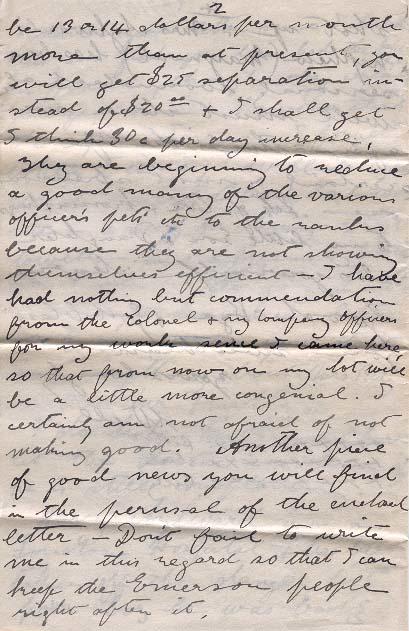 2
be 13 or 14 dollars per month
more than at present, you
will get $25 separation in-
stead of $20 00 + I shall get
I think 30c per day increase,
They are beginning to reduce
a good many of the various
officer's pets etc to the ranks
because they are not showing
themselves efficient - I have
had nothing but commendation
from the Colonel & my Company Officers
for my work since I came here
so that from now on my lot will
be a little more congenial. I
certainly am not afraid of not
making good. Another piece
of good news you will find
in the perusal of the enclosed
letter - Don't fail to write
me in this regard so that I can
keep the Emerson people
right after it.